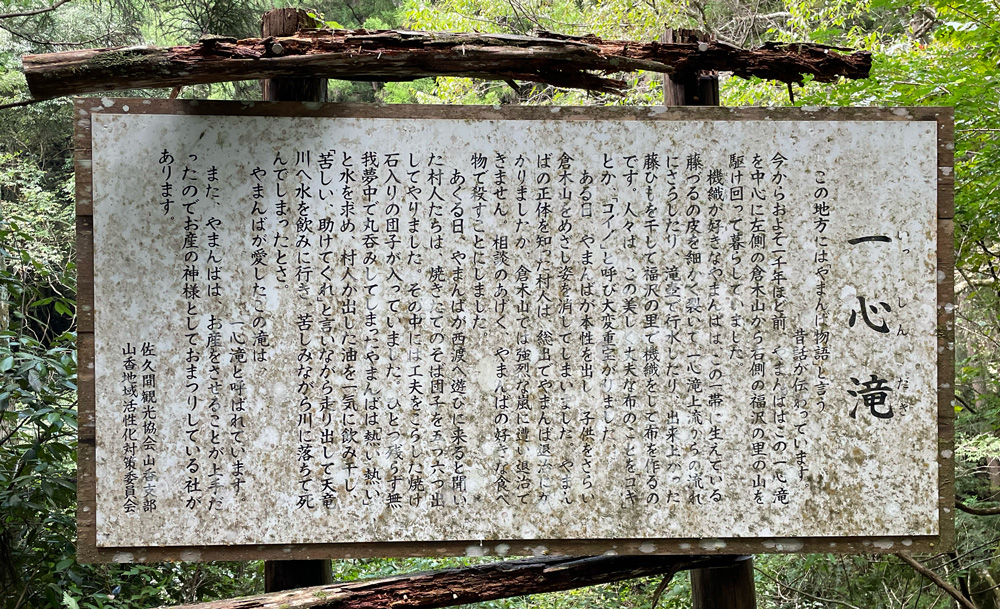 一心滝
いっしんだき
この地方にはやまんば物語と言う
昔話が伝わっています。
今からおよそ一千年ほど前、やまんばはこの一心滝
を中心に左側の倉木山から右側の福沢の里の山を
駆け回って暮らしていました。
機織が好きなやまんばは、この一帯に生えている
藤づるの皮を細かく裂いて一心滝上流からの流れ
にさらしたり、滝壺で行水したり、出来上がった
藤ひもを干して福沢の里で機織をして布を作るの
です。人々は、この美しく丈夫な布のことを「コギ」
とか、「コイノ」と呼び大変重宝がりました。
ある日、やまんばが本性を出し、子供をさらい
倉木山をめざし姿を消してしまいました。やまん
ばの正体を知った村人は、総出でやまんば退治にか
かりましたが、倉木山では強烈な嵐に遭い退治で
きません。相談のあげく、やまんばの好きな食べ
物で殺すことにしました。
あくる日、やまんばが西渡へ遊びに来ると聞い
た村人たちは、焼きたてのそば団子を五つ六つ出
してやりました。その中には工夫をこらした焼け
石入りの団子が入っていました。ひとつ残らず無
我夢中で丸呑みしてしまったやまんばは「熱い熱い」
と水を求め、村人が出した油を一気に飲み干し、
「苦しい、助けてくれ」と言いながら走り出して天竜
川へ水を飲みに行き、苦しみながら川に落ちて死
んでしまったとさ。
やまんばが愛したこの滝は、一心滝と呼ばれています。
また、やまんばは、お産をさせることが上手だ
ったのでお産の神様としておまつりしている社が
あります。
佐久間観光協会山香支部
山香地域活性化対策委員会